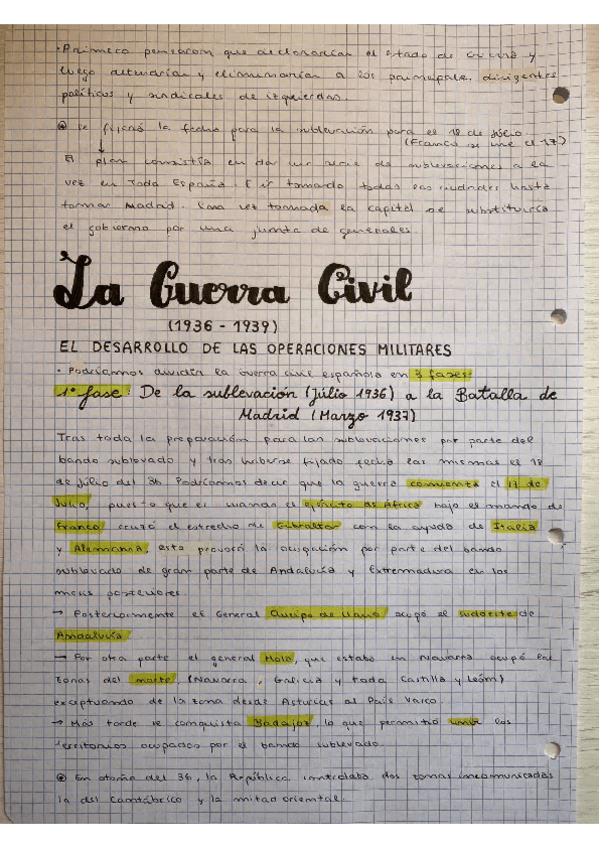 · Primero pensaron que declararían el estado de guerra y
luego detendrían y eliminarían a los principales dirigentes
políticos y sindicales de izquierdas.
Se fijará la fecha para la sublevación para el 18 de Julio
(Franco se une el 17)
El plan consistía en dar una serie de sublevaciones a la
vez en toda España. E ir tomando todas las ciudades hasta
tomar Madrid. Una vez tomada la capital se substituiría
el gobierno por una junta de generales.
La Guerra Civil
(1936 - 1939)
EL DESARROLLO DE LAS OPERACIONES MILITARES
· Podríamos dividir la guerra civil española en 3 fases:
1ª fase: De la sublevación (Júlio 1936) a la Batalla de
Madrid (Marzo 1937)
Tras toda la preparación para las sublevaciones por parte del
bando sublevado y tras haberse fijado fecha las mismas el 18
de Júlio del 36. Podríamos decir que la guerra comienza el 17 de
Julio, puesto que es cuando el ejército de África bajo el mando de
Franco cruzó el estrecho de Gibraltar con la ayuda de Italia
y Alemania, esto provocó la ocupación por parte del bando
sublevado de gran parte de Andalucía y Extremadura en los
meses posteriores.
→ Posteriormente el General Queipo de Llano ocupó el sudoeste de
Andalucía
→ Por otra parte el general Mola, que estaba en Navarra ocupó las
zonas del norte (Navarra, Galicia y toda Castilla y León)
exceptuando de la zona desde Asturias al País Vasco.
→ Más tarde se conquista Badajoz, lo que permitió unir los
territorios ocupados por el bando sublevado.
En otoño del 36, la República controlaba dos zonas incomunicadas
la del Cantábrico y la mitad oriental.